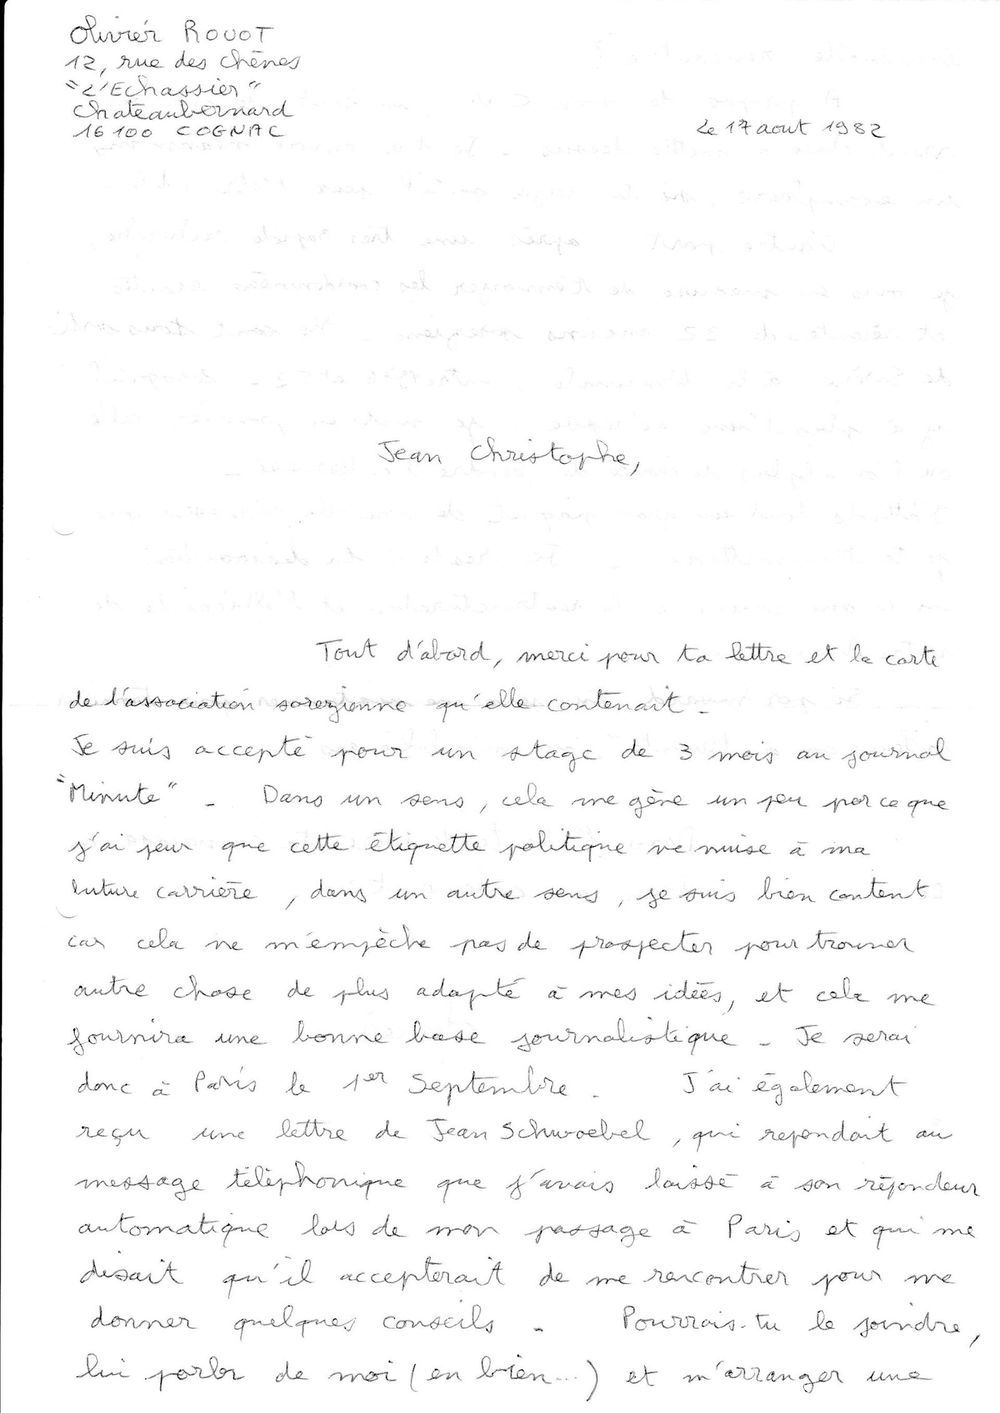 Olivier ROUOT
12, rue des Chênes
"L'Echassier"
Chateaubernard
16100 COGNAC
Le 17 aout 1982
Jean Christophe,
Tout d'abord, merci pour ta lettre et la carte
de l'association sorezienne qu'elle contenait -
Je suis accepté pour un stage de 3 mois au journal
"Minute" - Dans un sens, cela me gêne un peu parce que
j'ai peur que cette étiquette politique ne nuise à ma
future carrière, dans un autre sens, je suis bien content
car cela ne m'empèche pas de prospecter pour trouver
autre chose de plus adapté à mes idées, et cela me
fournira une bonne base journalistique - Je serai
donc à Paris le 1er Septembre - J'ai également
reçu une lettre de Jean Schwoebel, qui repondait au
message téléphonique que j'avais laissé à son répondeur
automatique lors de mon passage à Paris et qui me
disait qu'il accepterait de me rencontrer pour me
donner quelques conseils - Pourrais-tu le joindre,
lui parler de moi (en bien...) et m'arranger une